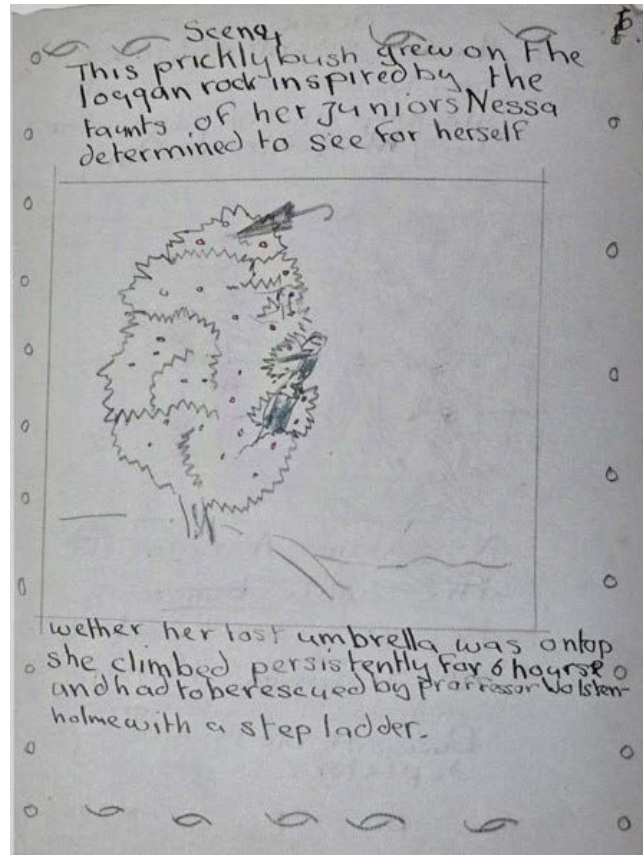 Scene,
This prickly bush grew on the
loggan rock inspired by the
taunts of her Juniors Nessa
determined to see for herself
wether her lost umbrella was ontop
she climbed persistently for 6 hourse
and had to be rescued by proffessor Wolsten-
holme with a step ladder.